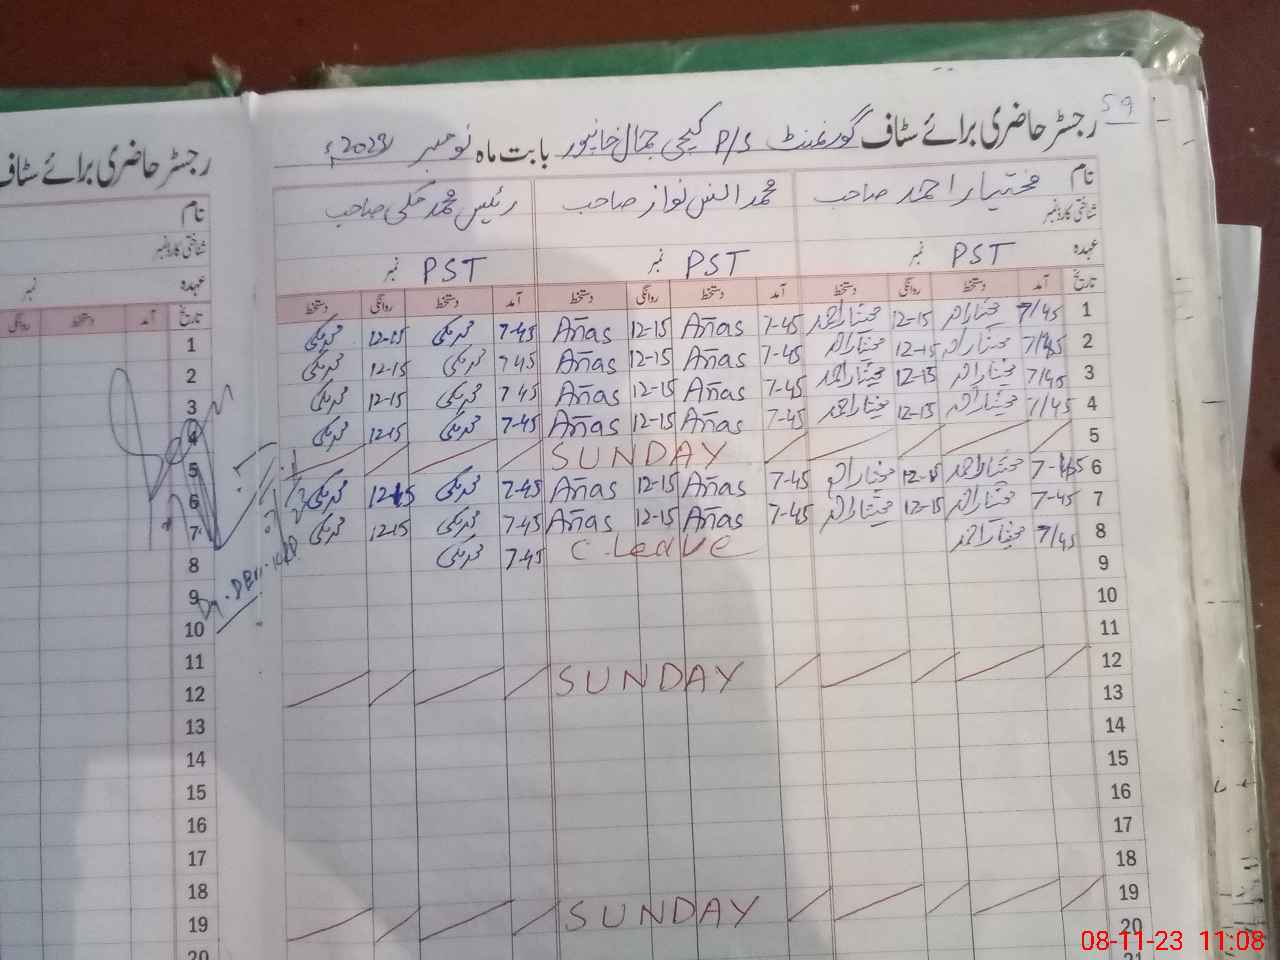 59
رجسٹر حاضری برائے سٹاف گورنمنٹ P/S کیچی جمال خانپور بابت ماہ نومبر 2023ء
نام مختیار احمد صاحب محمد انس نواز صاحب رئیس محمد مکی صاحب
شناختی کارڈ نمبر
عہدہ PST نمبر PST نمبر PST نمبر
تاریخ آمد دستخط روانگی دستخط آمد دستخط روانگی دستخط آمد دستخط روانگی دستخط
1 7/45 مختیار احمد 12-15 مختیار احمد 7-45 Añas 12-15 Añas 7-45 محمد مکی 12-15 محمد مکی
2 7/45 مختیار احمد 12-15 مختیار احمد 7-45 Añas 12-15 Añas 7 45 محمد مکی 12-15 محمد مکی
3 7/45 مختیار احمد 12-15 مختیار احمد 7-45 Añas 12-15 Añas 7 45 محمد مکی 12-15 محمد مکی
4 7/45 مختیار احمد 12-15 مختیار احمد 7-45 Añas 12-15 Añas 7-45 محمد مکی 12-15 محمد مکی
5 SUNDAY
6 7-45 مختیار احمد 12-15 مختیار احمد 7-45 Añas 12-15 Añas 7-45 محمد مکی 12-15 محمد مکی
7 7-45 مختیار احمد 12-15 مختیار احمد 7-45 Añas 12-15 Añas 7-45 محمد مکی 12-15 محمد مکی
8 7/45 مختیار احمد C-Leave 7-45 محمد مکی
9
10
11
12 SUNDAY
13
14
15
16
17
18
19 SUNDAY
20
21
رجسٹر حاضری برائے سٹاف
نام
شناختی کارڈ نمبر
عہدہ نمبر
تاریخ آمد دستخط روانگی
1
2
3
4
5
6
7
8
9
10
11
12
13
14
15
16
17
18
19
20
08-11-23 11:08